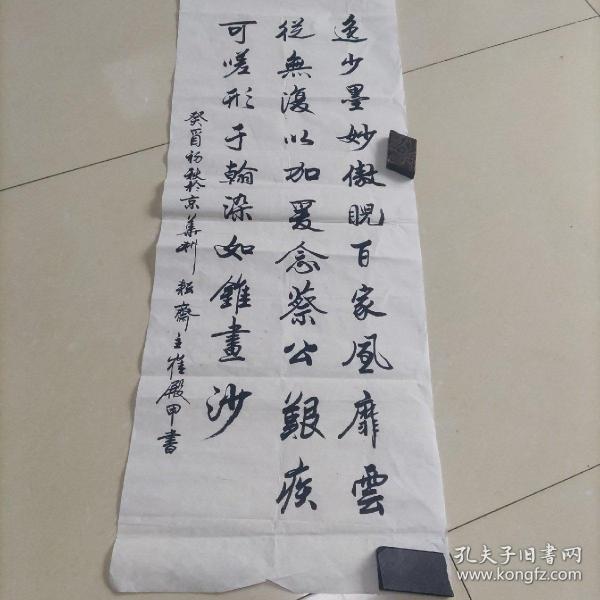 逸少墨妙傲睨百家風靡雲
從無復以加爰念蔡公艱疾
可嗟形于翰染如錐畫沙
癸酉初秋於京華 耘齋主崔殿甲書
孔夫子旧书网
www.kongfz.com